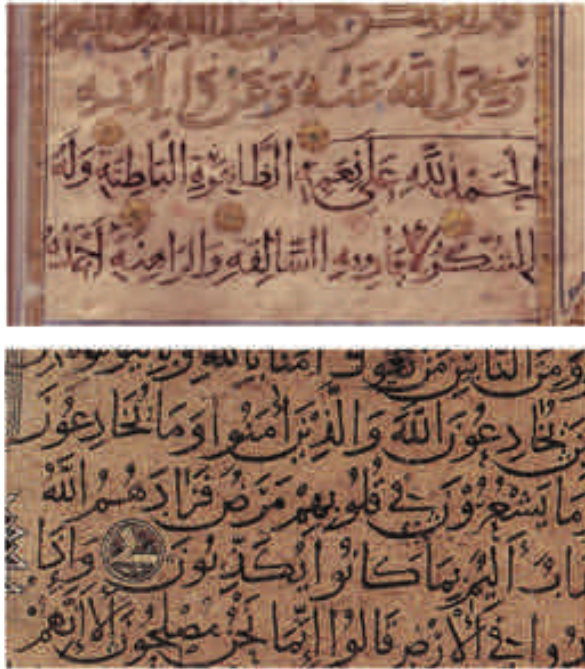 رضى الله عنه وعن
الحمد لله على نعمه الظاهرة الباطنة وله
الشكر السالفه والراهنه احمده
ومن الناس من يقول امنا بالله
يُخَادِعُونَ اللَّهَ وَالَّذِينَ اٰمَنُوا وَمَا يُخَادِعُونَ
مَا يَشْعُرُونَ فِي قُلُوبِهِمْ مَرَضٌ فَزَادَهُمُ اللَّهُ
اَلِيمٌ بِمَا كَانُوا يُكَذِّبُونَ وَإِذَا
فِي الْأَرْضِ قَالُوا إِنَّمَا نَحْنُ مُصْلِحُونَ أَلَا إِنَّهُمْ